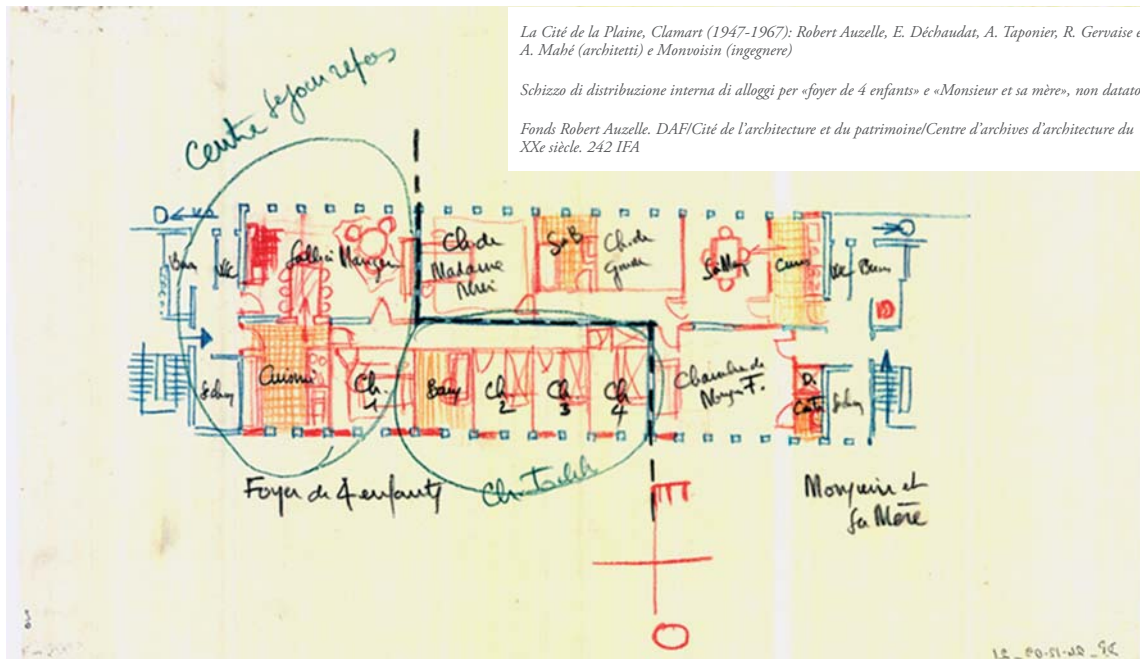 La Cité de la Plaine, Clamart (1947-1967): Robert Auzelle, E. Déchaudat, A. Taponier, R. Gervaise e
A. Mahé (architetti) e Monvoisin (ingegnere)
Schizzo di distribuzione interna di alloggi per «foyer de 4 enfants» e «Monsieur et sa mère», non datato
Fonds Robert Auzelle. DAF/Cité de l'architecture et du patrimoine/Centre d'archives d'architecture du
XXe siècle. 242 IFA
Centre Sejour repos
D
Ch. de
Madame
S. B
Ch. de
Salle à Manger
WC
Cuisine
Ch.
1
Bains
Ch
2
Ch
3
Ch
4
Chambre de
D.
Foyer de 4 enfants
Monsieur et
sa Mère